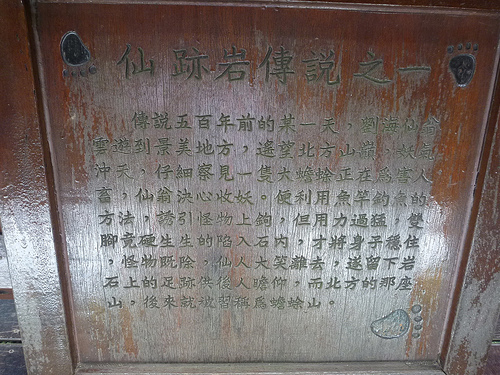 仙跡岩傳說之一
傳說五百年前的某一天，劉海仙翁
雲遊到景美地方，遙望北方山嶺，妖氣
沖天，仔細察見一隻大蟾蜍正在為害人
畜，仙翁決心收妖。便利用魚竿釣魚的
方法，誘引怪物上鉤，但用力過猛，雙
腳竟硬生生的陷入石內，才將身子穩住
，怪物既除，仙人大笑離去，遂留下岩
石上的足跡供後人瞻仰，而北方的那座
山，後來就被習稱為蟾蜍山。